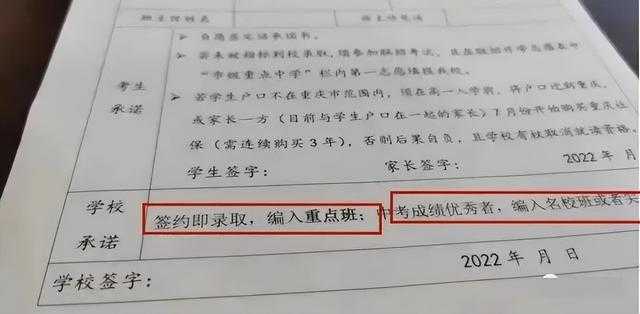 自愿签定诺承诺书。
若未被指标到校录取,须参加联招考试,且在联招升学志愿表中
“市级重点中学”栏内第一志愿填报我校。
考生
承诺
若学生户口不在重庆市范围内,须在高一入学前,将户口迁到重庆,
或家长一方(目前与学生户口在一起的家长)7月份开始购买重庆社
保(需连续购买3年),否则后果自负,且学校有权取消就读资格。
学生签字: 家长签字:
2022 年 月
学校
承诺
签约即录取,编入重点班;中考成绩优秀者,编入名校班或者实
学校签字:
2022 年 月 日